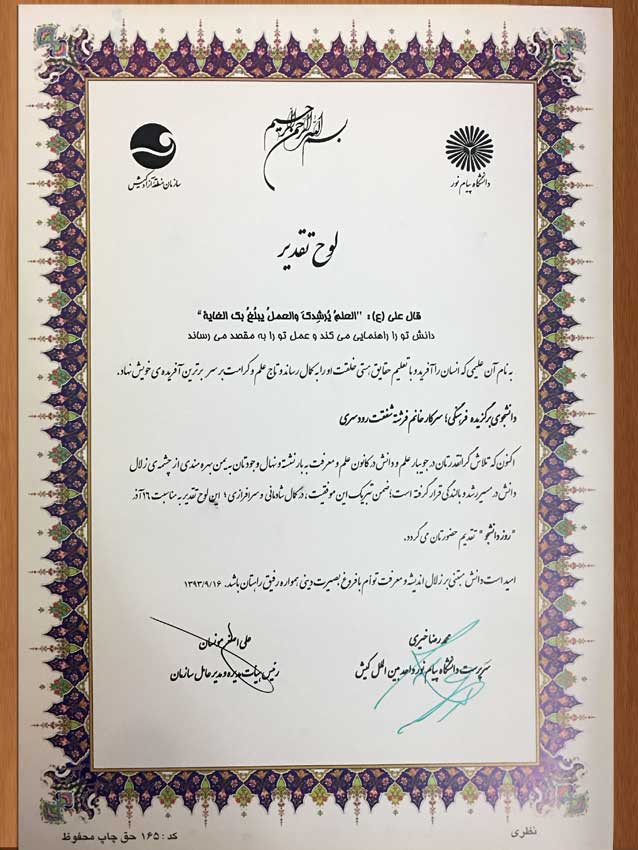 بسم الله الرحمن الرحیم
دانشگاه پیام نور
سازمان منطقه آزاد کیش
لوح تقدیر
قال علی (ع) : "العلمُ یُرشِدکَ والعملُ یبلُغُ بکَ الغایة"
دانش تو را راهنمایی می کند و عمل تو را به مقصد می رساند
به نام آن علیمی که انسان را آفرید و با تعلیم حقایق هستی خلقت او را به کمال رساند و تاج علم و کرامت بر سر برترین آفریده ی خویش نهاد.
دانشجوی برگزیده فرهنگی؛ سرکار خانم فرشته شفقت رودسری
اکنون که تلاش گرانقدرتان در جویبار علم و دانش در کانون علم و معرفت به بار نشسته و نهال وجودتان به یمن بهره مندی از چشمه ی زلال
دانش در مسیر رشد و بالندگی قرار گرفته است؛ ضمن تبریک این موفقیت، در کمال شادمانی و سرافرازی؛ این لوح تقدیر به مناسبت ۱۶ آذر
"روز دانشجو" تقدیم حضورتان می گردد.
امید است دانش مبتنی بر زلال اندیشه و معرفت توأم با فروغ بصیرت دینی همواره رفیق راهتان باشد. ۱۳۹۳/۹/۱۶
محمدرضا خیری
سرپرست دانشگاه پیام نور واحد بین الملل کیش
علی اصغر مونسان
رئیس هیات مدیره و مدیر عامل سازمان
نظری
کد : ۱۶۵ حق چاپ محفوظ